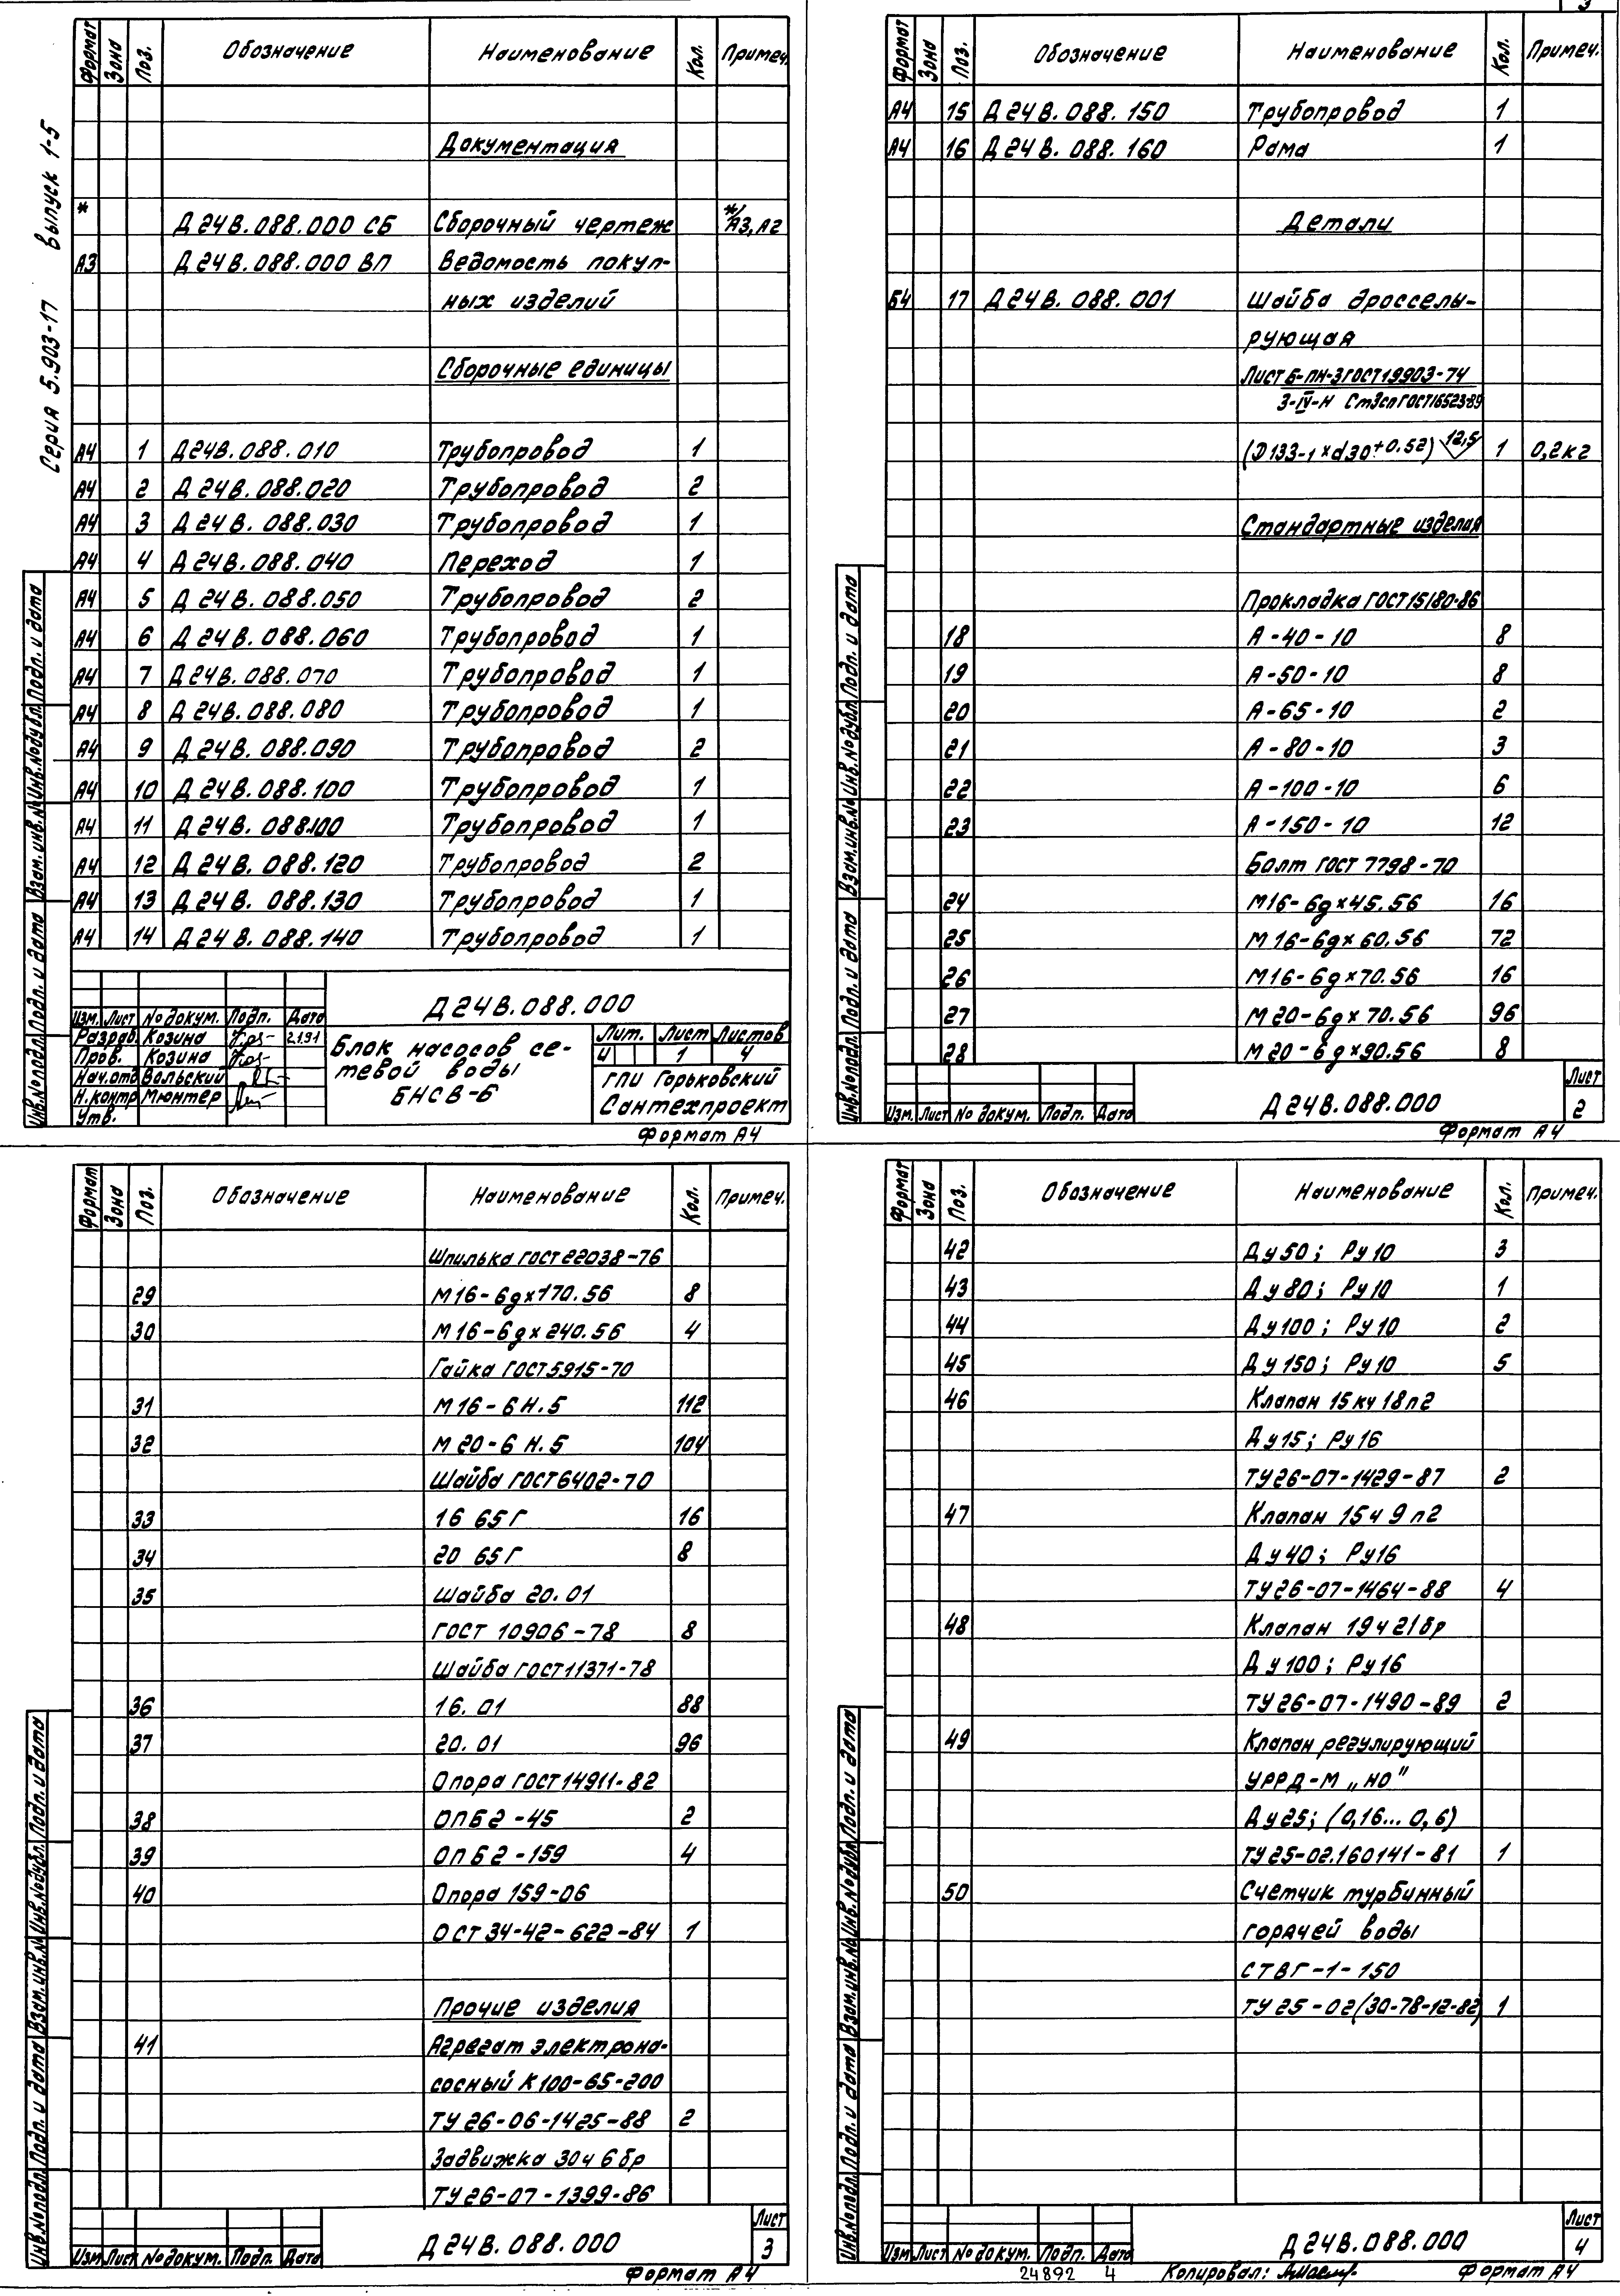 Серия 5.903-17 Выпуск 1-5
Формат Зона Поз. Обозначение Наименование Кол. Примеч.
Документация
* Д24В.088.000 СБ Сборочный чертеж */А3, А2
А3 Д24В.088.000 ВП Ведомость покуп-
ных изделий
Сборочные единицы
А4 1 Д24В.088.010 Трубопровод 1
А4 2 Д24В.088.020 Трубопровод 2
А4 3 Д24В.088.030 Трубопровод 1
А4 4 Д24В.088.040 Переход 1
А4 5 Д24В.088.050 Трубопровод 2
А4 6 Д24В.088.060 Трубопровод 1
А4 7 Д24В.088.070 Трубопровод 1
А4 8 Д24В.088.080 Трубопровод 1
А4 9 Д24В.088.090 Трубопровод 2
А4 10 Д24В.088.100 Трубопровод 1
А4 11 Д24В.088.100 Трубопровод 1
А4 12 Д24В.088.120 Трубопровод 2
А4 13 Д24В.088.130 Трубопровод 1
А4 14 Д24В.088.140 Трубопровод 1
Инв.№подл. Подп. и дата Взам.инв.№ Инв.№дубл. Подп. и дата
Д24В.088.000
Изм. Лист № докум. Подп. Дата
Разраб. Козина 2.1.91
Пров. Козина
Нач.отд Вольский
Н.контр Мюнтер
Утв.
Блок насосов се-
тевой воды
БНСВ-6
Лит. Лист Листов
И 1 4
ГПИ Горьковский
Сантехпроект
Формат А4
3
Формат Зона Поз. Обозначение Наименование Кол. Примеч.
А4 15 Д24В.088.150 Трубопровод 1
А4 16 Д24В.088.160 Рама 1
Детали
Б4 17 Д24В.088.001 Шайба дросселы-
рующая
Лист Б-ПН-3 ГОСТ 19903-74
3-IV-Н Ст3сп ГОСТ 16523-89
(D133-1 x d30+0.52) 12,5 1 0,2кг
Стандартные изделия
Прокладка ГОСТ 15180-86
18 А-40-10 8
19 А-50-10 8
20 А-65-10 2
21 А-80-10 3
22 А-100-10 6
23 А-150-10 12
Болт ГОСТ 7798-70
24 М16-6gx45.56 16
25 М16-6gx60.56 72
26 М16-6gx70.56 16
27 М20-6gx70.56 96
28 М20-6gx90.56 8
Инв.№подл. Подп. и дата Взам.инв.№ Инв.№дубл. Подп. и дата
Изм. Лист № докум. Подп. Дата
Д24В.088.000
Лист
2
Формат А4
Формат Зона Поз. Обозначение Наименование Кол. Примеч.
Шпилька ГОСТ 22038-76
29 М16-6gx170.56 8
30 М16-6gx240.56 4
Гайка ГОСТ 5915-70
31 М16-6Н.5 112
32 М20-6Н.5 104
Шайба ГОСТ 6402-70
33 16 65Г 16
34 20 65Г 8
35 Шайба 20.01
ГОСТ 10906-78 8
Шайба ГОСТ 11371-78
36 16.01 88
37 20.01 96
Опора ГОСТ 14911-82
38 ОПБ2-45 2
39 ОПБ2-159 4
40 Опора 159-06
ОСТ 34-42-622-84 1
Прочие изделия
41 Агрегат электрона-
сосный К100-65-200
ТУ26-06-1425-88 2
Задвижка 30ч6бр
ТУ26-07-1399-86
Инв.№подл. Подп. и дата Взам.инв.№ Инв.№дубл. Подп. и дата
Изм. Лист № докум. Подп. Дата
Д24В.088.000
Лист
3
Формат А4
Формат Зона Поз. Обозначение Наименование Кол. Примеч.
42 Ду50; Ру10 3
43 Ду80; Ру10 1
44 Ду100; Ру10 2
45 Ду150; Ру10 5
46 Клапан 15кч18п2
Ду15; Ру16
ТУ26-07-1429-87 2
47 Клапан 15ч9п2
Ду40; Ру16
ТУ26-07-1464-88 4
48 Клапан 19ч21бр
Ду100; Ру16
ТУ26-07-1490-89 2
49 Клапан регулирующий
УРРД-М „НО"
Ду25; (0,16...0,6)
ТУ25-02.160141-81 1
50 Счетчик турбинный
горячей воды
СТВГ-1-150
ТУ25-02(30-78-12-82) 1
Инв.№подл. Подп. и дата Взам.инв.№ Инв.№дубл. Подп. и дата
Изм. Лист № докум. Подп. Дата
Д24В.088.000
Лист
4
24892 4 Копировал: Формат А4